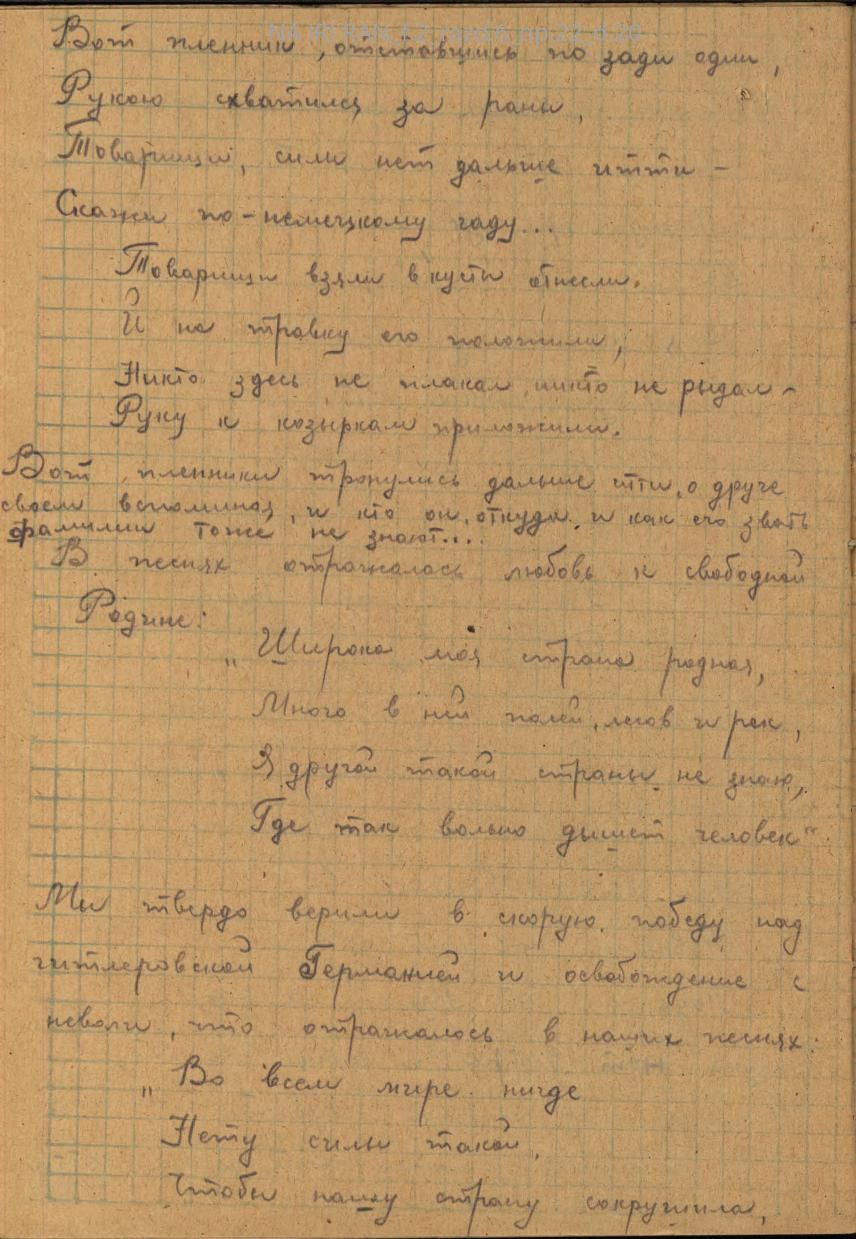 Вот пленник, отставшись по зади один,
Рукою схватился за рану,
Товарищи, силы нет дальше итти –
Скажи по-немецкому гаду...
Товарищи взяли в кусты отнесли.
И на травку его положили,
Никто здесь не плакал никто не рыдал –
Руку к козыркам приложили.
Вот пленники тронулись дальше итти, о друге
своем вспоминая, и кто он, откуда, и как его звать
фамилии тоже не знают....
В песнях отражалась любовь к свободной
Родине:
„Широка моя страна родная,
Много в ней полей, лесов и рек,
Я другой такой страны не знаю,
Где так вольно дышет человек“
Мы твердо верили в скорую победу над
гитлеровской Германией и освобождение с
неволи, что отражалось в наших песнях:
„Во всем мире нигде
Нету силы такой,
Чтобы нашу страну сокрушила,